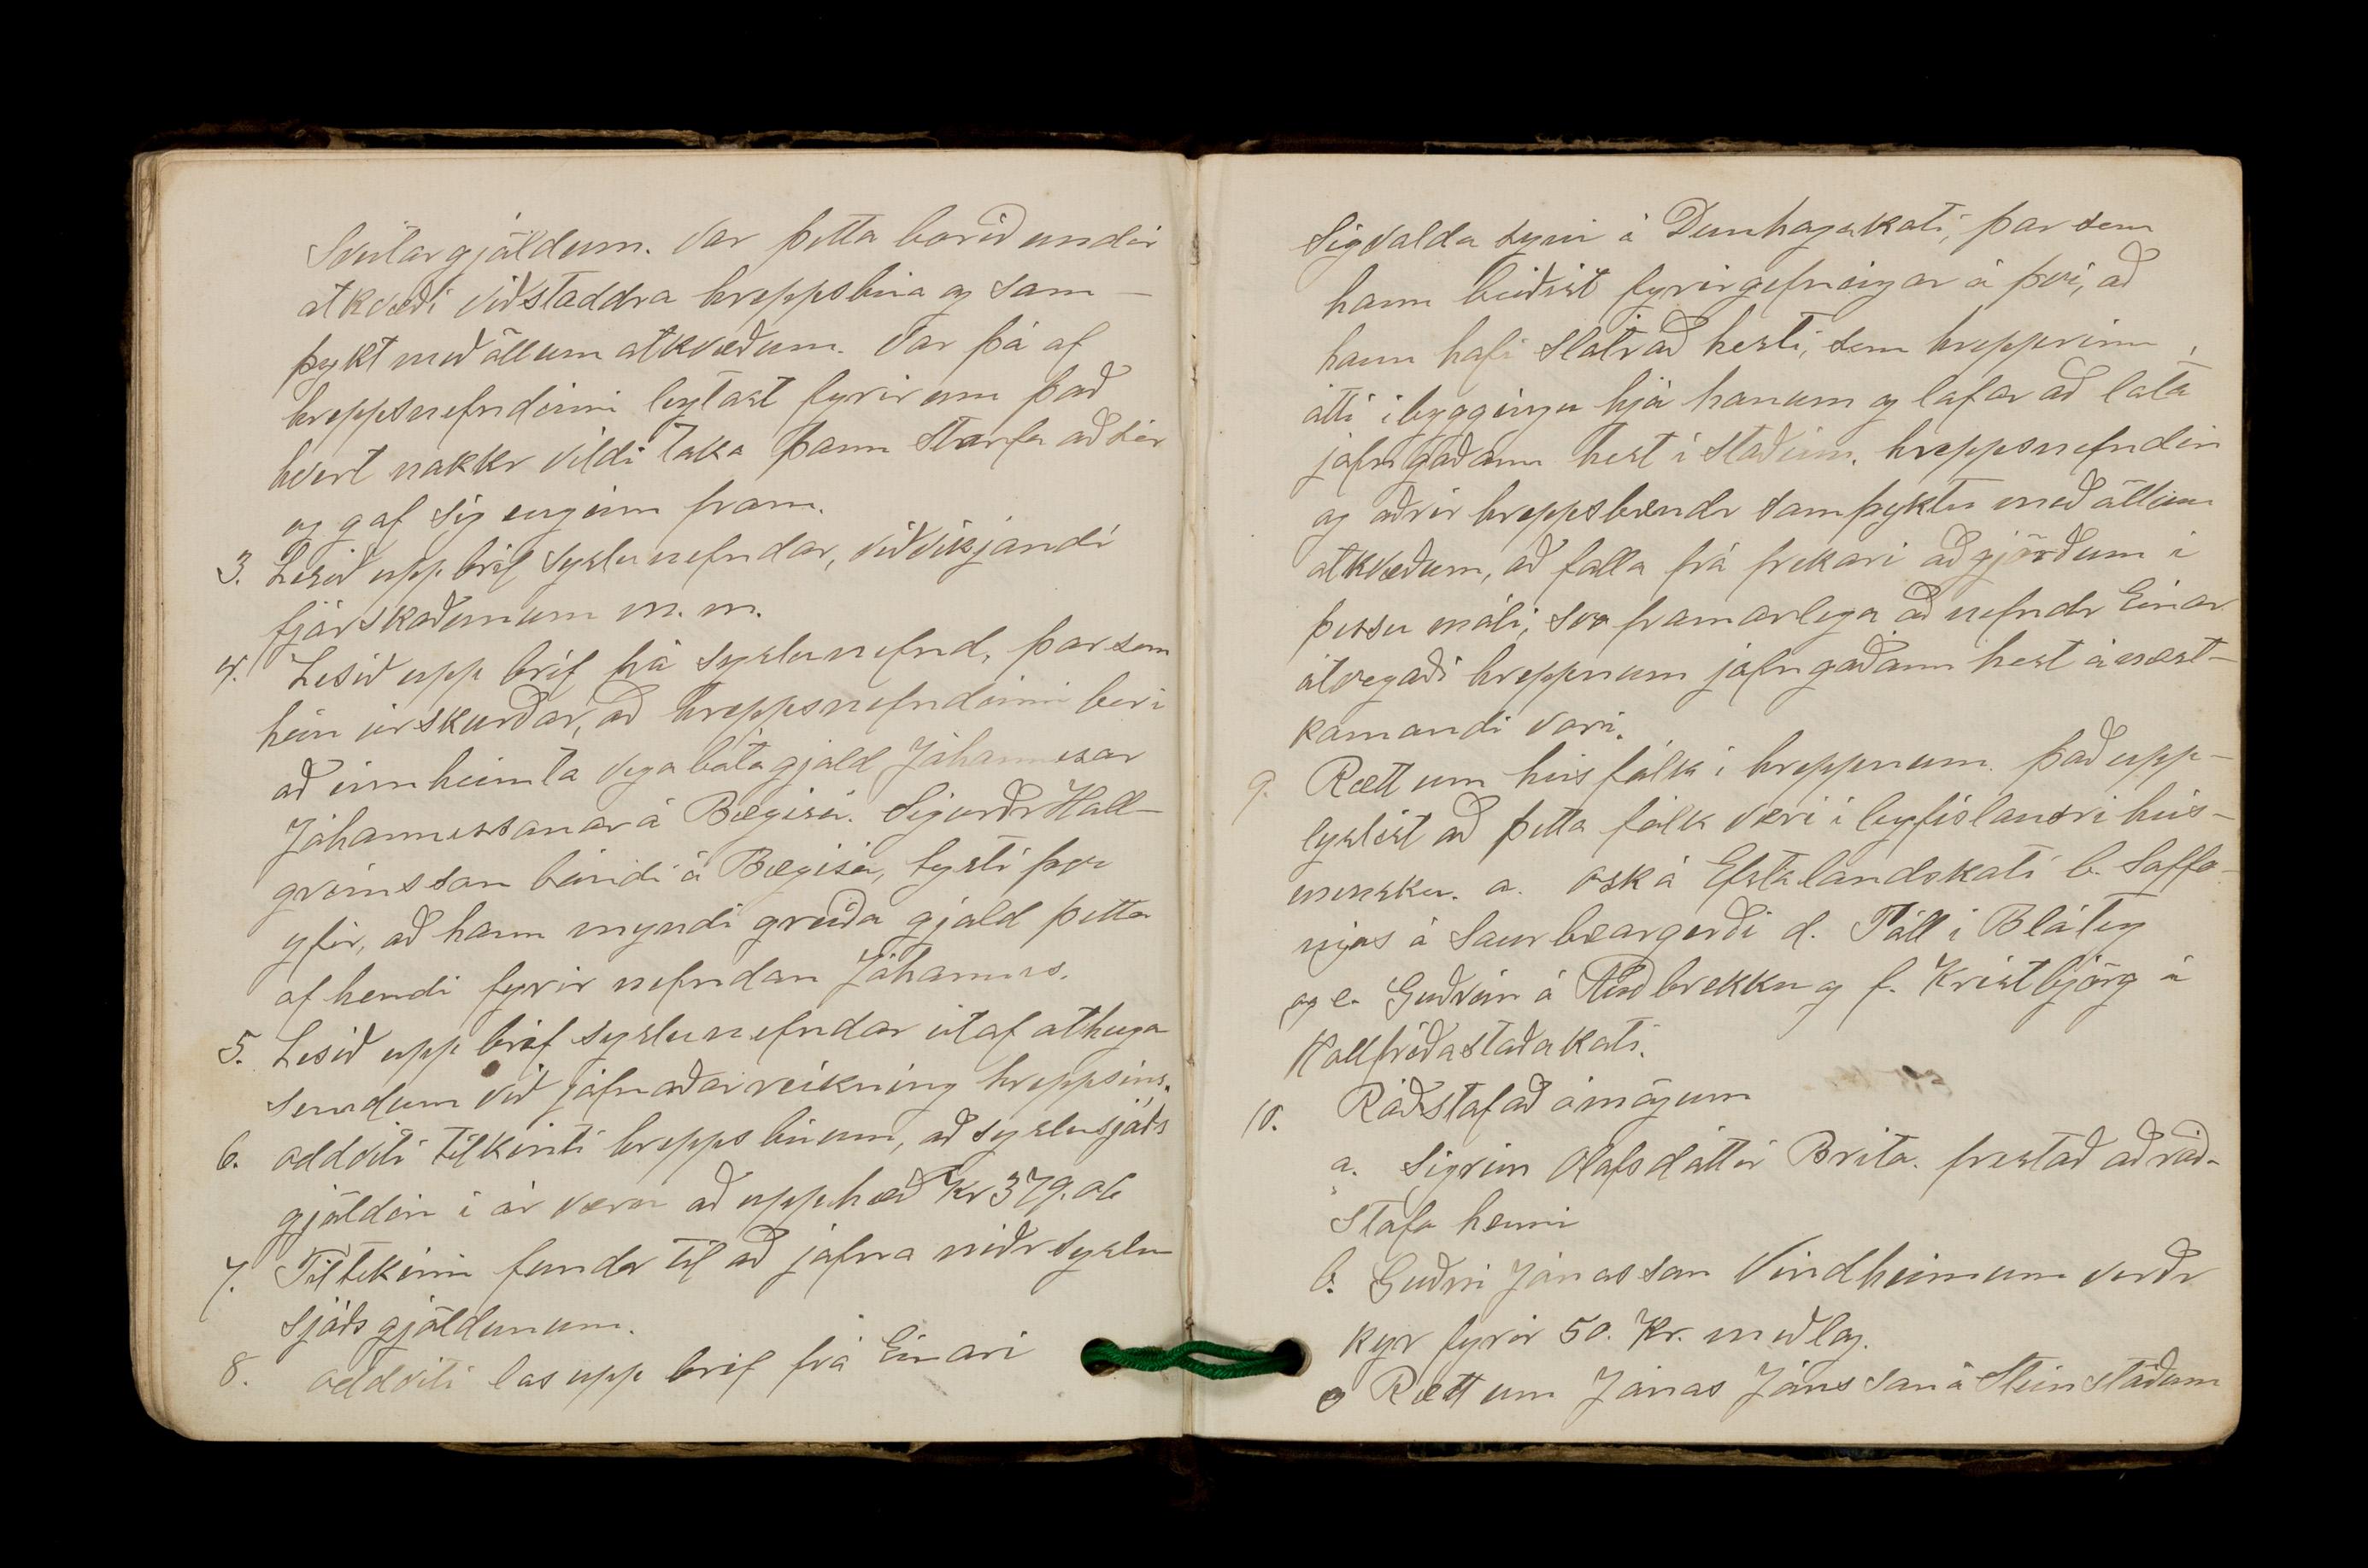 Sveitargjöldum. Var þetta borið undir
atkvæði viðstaddra hreppsbúa og sam-
þykt með öllum atkvæðum. Var þá af
hreppsnefndinni leytast fyrir um það
hvert nokkr vildi taka þann starfa að sér
og gaf sig enginn fram.
3. Lesið upp bréf sýslunefndar, viðvíkjandi
fjárskaðunum m. m.
4. Lesið upp bréf frá sýslunefnd, þar sem
hún úrskurðar, að hreppsnefndinni beri
að innheimta vegabótagjald Jóhannesar
Jóhannessonar á Bægisá. Sigurðr Hall-
grímsson bóndi á Bægisá, lysti því
yfir, að hann myndi greiða gjald þetta
af hendi fyrir nefndan Jóhannes.
5. Lesið upp bréf sýslunefndar útaf athuga
semdum við jafnaðarreikning hreppsins.
6. oddviti tilkinti hreppsbúum, að sýslusjóðs
gjöldin í ár væru að upphæð Kr 379.06
7. Tiltekinn fundr til að jafna niðr sýslu
sjóðsgjöldunum.
8. oddviti las upp bréf frá Einari
Sigvalda syni á Dunhagakoti, þar sem
hann beiðist fyrirgefningar á því, að
hann hafi slátrað hesti, sem hreppurinn
átti í byggingu hjá honum og lofar að láta
jafngóðann hest í staðinn. hreppsnefndin
og aðrir hreppsbændr samþyktu með öllum
atkvæðum, að falla frá frekari aðgjörðum í
þessu máli, svo framarlega að nefndr Einar
útvegaði hreppnum jafngóðann hest á næst-
komandi vori.
9. Rætt um húsfólk í hreppnum. það upp-
lystist að þetta fólk væri í leyfislausri hús-
mensku. a. Ósk á Efstalandskoti b. Soffo-
nías á Saurbæargerði d. Páll í Bláteig
og e. Guðrún á Hlíðbrekku og f. Kristbjörg á
Hallfríðastaðakoti.
10. Ráðstafað ómögum
a. Sigrún Ólafsdóttir Brita. frestað að ráð-
stafa henni
b. Guðni Jónasson Vindheimum verðr
kyr fyrir 50. Kr. meðlag.
c Rætt um Jónas Jónsson á Steinstöðum